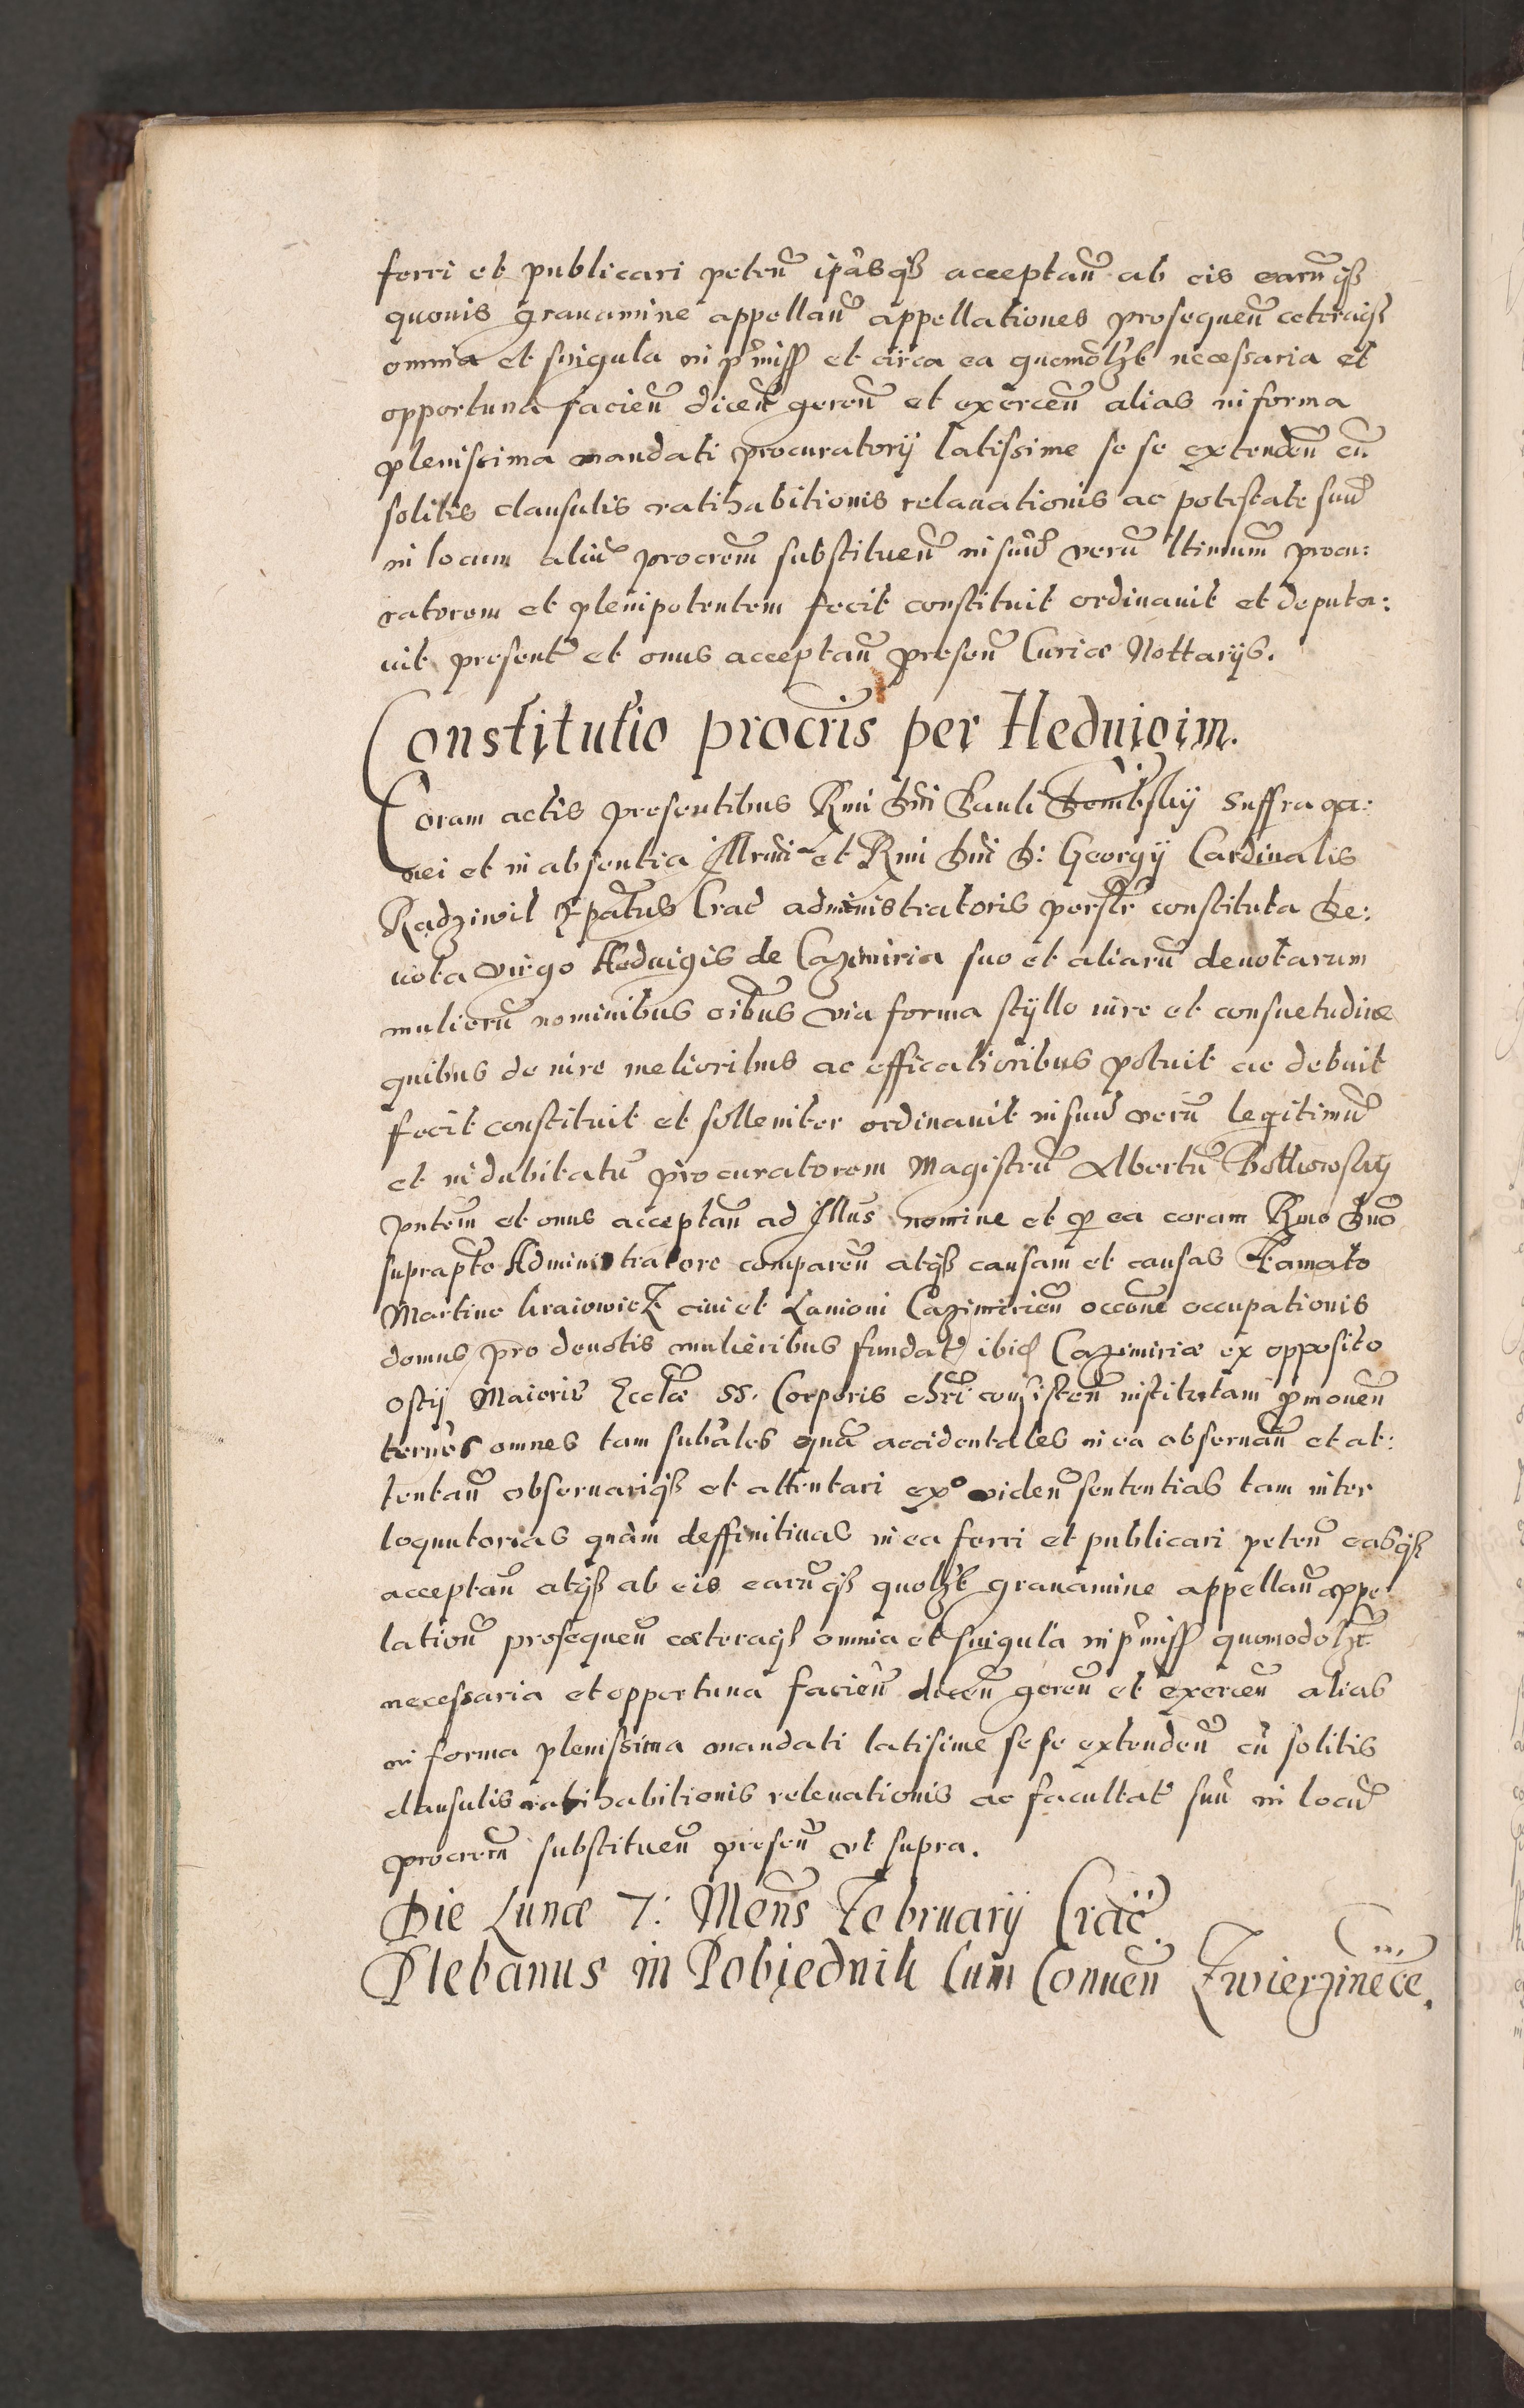 ferri et publicari peteñ ip̃asqȝ acceptañ ab eis earũqȝ
quouis grauamine appellañ appellationes prosequeñ ceteraqȝ
omnia et singula in p̃miss et circa ea quomõlȝt necessaria et
opportuna facieñ diceñ gereñ et exerceñ alias in forma
plenissima mandati procuratorij latissime se se extendeñ cũ
solitis clausulis ratihabitionis relauationis ac potestate suũ
in locum aliũ procrem̃ substitueñ in suũ verũ ltimum̃ procu:
ratorem et plenipotentem fecit constituit ordinauit et deputa:
uit present̃ et onus acceptañ preseñ Curiæ Nottarijs.
Constitutio procris̃ per Heduigim.
Coram actis presentibus Rm̃i Dñi Pauli Dembskij Suffraga:
nei et in absentia Illrmi et Rmi Dñi D: Georgij Cardinalis
Radziwil Ep̃atus Crac̃ administratoris personlr̃ constituta De:
uota virgo Heduigis de Cazimiria suo et aliarũ deuotarum
mulierũ nominibus oĩbus via forma stÿllo iure et consuetudine
quibus de iure melioribus ac efficatioribus potuit ac debuit
fecit constituit et solleniter ordinauit in suũ verũ legitimũ
et indubitatũ procuratorem Magistrũ Albertũ
pñtem̃ et onus acceptañ ad Illius nomine et p ea coram Rmo Dño
suprapt̃o Administratore compareñ atqȝ causam et causas famato
Martino Kraiowicz ciui et Lanioni Cazimirieñ occõne occupationis
domus pro deuotis mulieribus fundat̃ ibid Cazimiriæ ex opposito
ostij Maioris Eccl̃æ SS. Corporis chr̃i consisteñ institutam p̃moueñ
termĩos omnes tam subãles quã accidentales in ea obseruañ et at:
tentañ obseruariqȝ et attentari exº videñ sententias tam inter
loquutorias quàm deffinitiuas in ea ferri et publicari peteñ easqȝ
acceptañ atqȝ ab eis earũqȝ quolȝt grauamine appellañ appel
lationũ prosequeñ cæteraqȝ omnia et singula in p̃miss quomodolȝt
necessaria et opportuna facieñ diceñ gereñ et exerceñ alias
in forma plenissima mandati latisime sese extendeñ cũ solitis
clausulis ratihabitionis releuationis ac facultat̃ suũ in locũ
procrem̃ substitueñ preseñ vt supra.
Die Lunæ 7: Meñs Februarij Crac̃.
Plebanus in Pobiednik Cum Conueñ Zwierzinece.